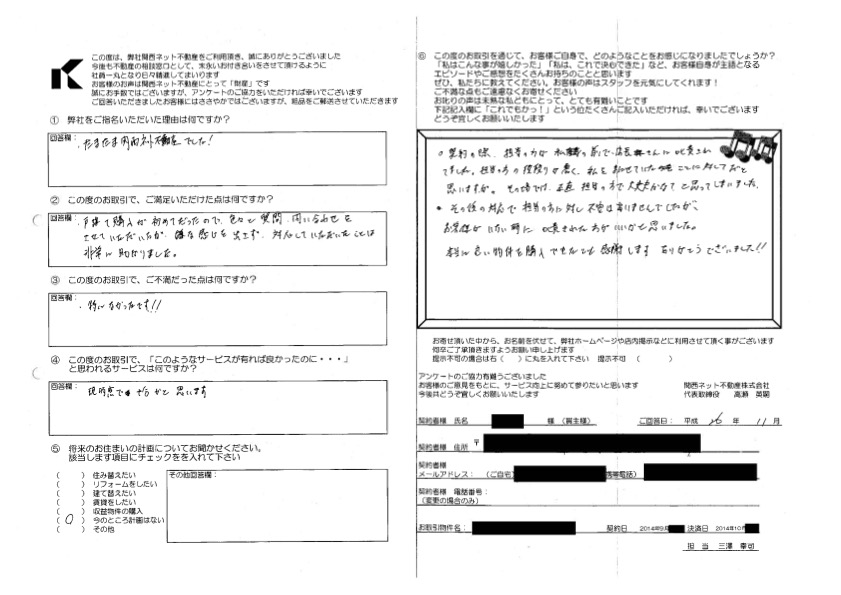 この度は、弊社関西ネット不動産をご利用頂き、誠にありがとうございました
今後も不動産の相談窓口として、末永いお付き合いをさせて頂けるように
社員一丸となり日々精進してまいります
お客様のお声は関西ネット不動産にとって「財産」です
誠にお手数ではございますが、アンケートのご協力をいただければ幸いでございます
ご回答いただきましたお客様にはささやかではございますが、粗品をご郵送させていただきます
① 弊社をご指名いただいた理由は何ですか?
回答欄:
・たまたま関西ネット不動産でした!
② この度のお取引で、ご満足いただけた点は何ですか?
回答欄:
・戸建て購入が初めてだったので、色々と質問、問い合わせを
させていただいたが、嫌な感じを出さず、対応していただいたことは
非常に助かりました。
③ この度のお取引で、ご不満だった点は何ですか?
回答欄:
・特になかったです!!
④ この度のお取引で、「このようなサービスが有れば良かったのに・・・」
と思われるサービスは何ですか?
回答欄:
現時点では ないかと思います
⑤ 将来のお住まいの計画についてお聞かせください。
該当します項目にチェックを入れて下さい
( ) 住み替えたい
( ) リフォームをしたい
( ) 建て替えたい
( ) 賃貸をしたい
( ) 収益物件の購入
( O ) 今のところ計画はない
( ) その他
その他回答欄:
⑥ この度のお取引を通じて、お客様ご自身で、どのようなことをお感じになりましたでしょうか?
「私はこんな事が嬉しかった」「私は、これで決心できた」など、お客様自身が主語となる
エピソードやご感想をたくさんお持ちのことと思います
ぜひ、私たちに教えてください、お客様の声はスタッフを元気にしてくれます!
ご不満な点もご遠慮なくお寄せください
お叱りの声は未熟な私どもにとって、とても有難いことです
下記記入欄に「これでもかっ!」という位たくさんご記入いただければ、幸いでございます
どうぞ宜しくお願いいたします
○ 契約の際、担当の方が私共の前で、店長さんに叱責され
てました。担当の方の段取りが悪く、私を
思いますが。その時では、正直 担当の方で大丈夫かなと思ってしまいました。
その後の対応で担当の方に対し不安はありませんでしたが、
お客様がいない時に叱責された方がいいかと思いました。
本当に良い物件を購入できたこと感謝します ありがとうございました!!
お寄せ頂いた中から、お名前を伏せて、弊社ホームページや店内掲示などに利用させて頂く事がございます
何卒ご了承頂きますようお願い申し上げます
掲示不可の場合は右( )に丸を入れて下さい 掲示不可 ( )
アンケートのご協力有難うございました
お客様のご意見をもとに、サービス向上に努めて参りたいと思います
今後共どうぞ宜しくお願いいたします
関西ネット不動産株式会社
代表取締役 高瀬 英剛
契約者様 氏名 様 (買主様) ご回答日: 平成 26 年 11 月
契約者様 住所 〒
契約者様
メールアドレス: (ご自宅) 携帯電話)
契約者様 電話番号:
(変更の場合のみ)
お取引物件名: 契約日 2014年9月 決済日 2014年10月
担 当 三澤 幸司